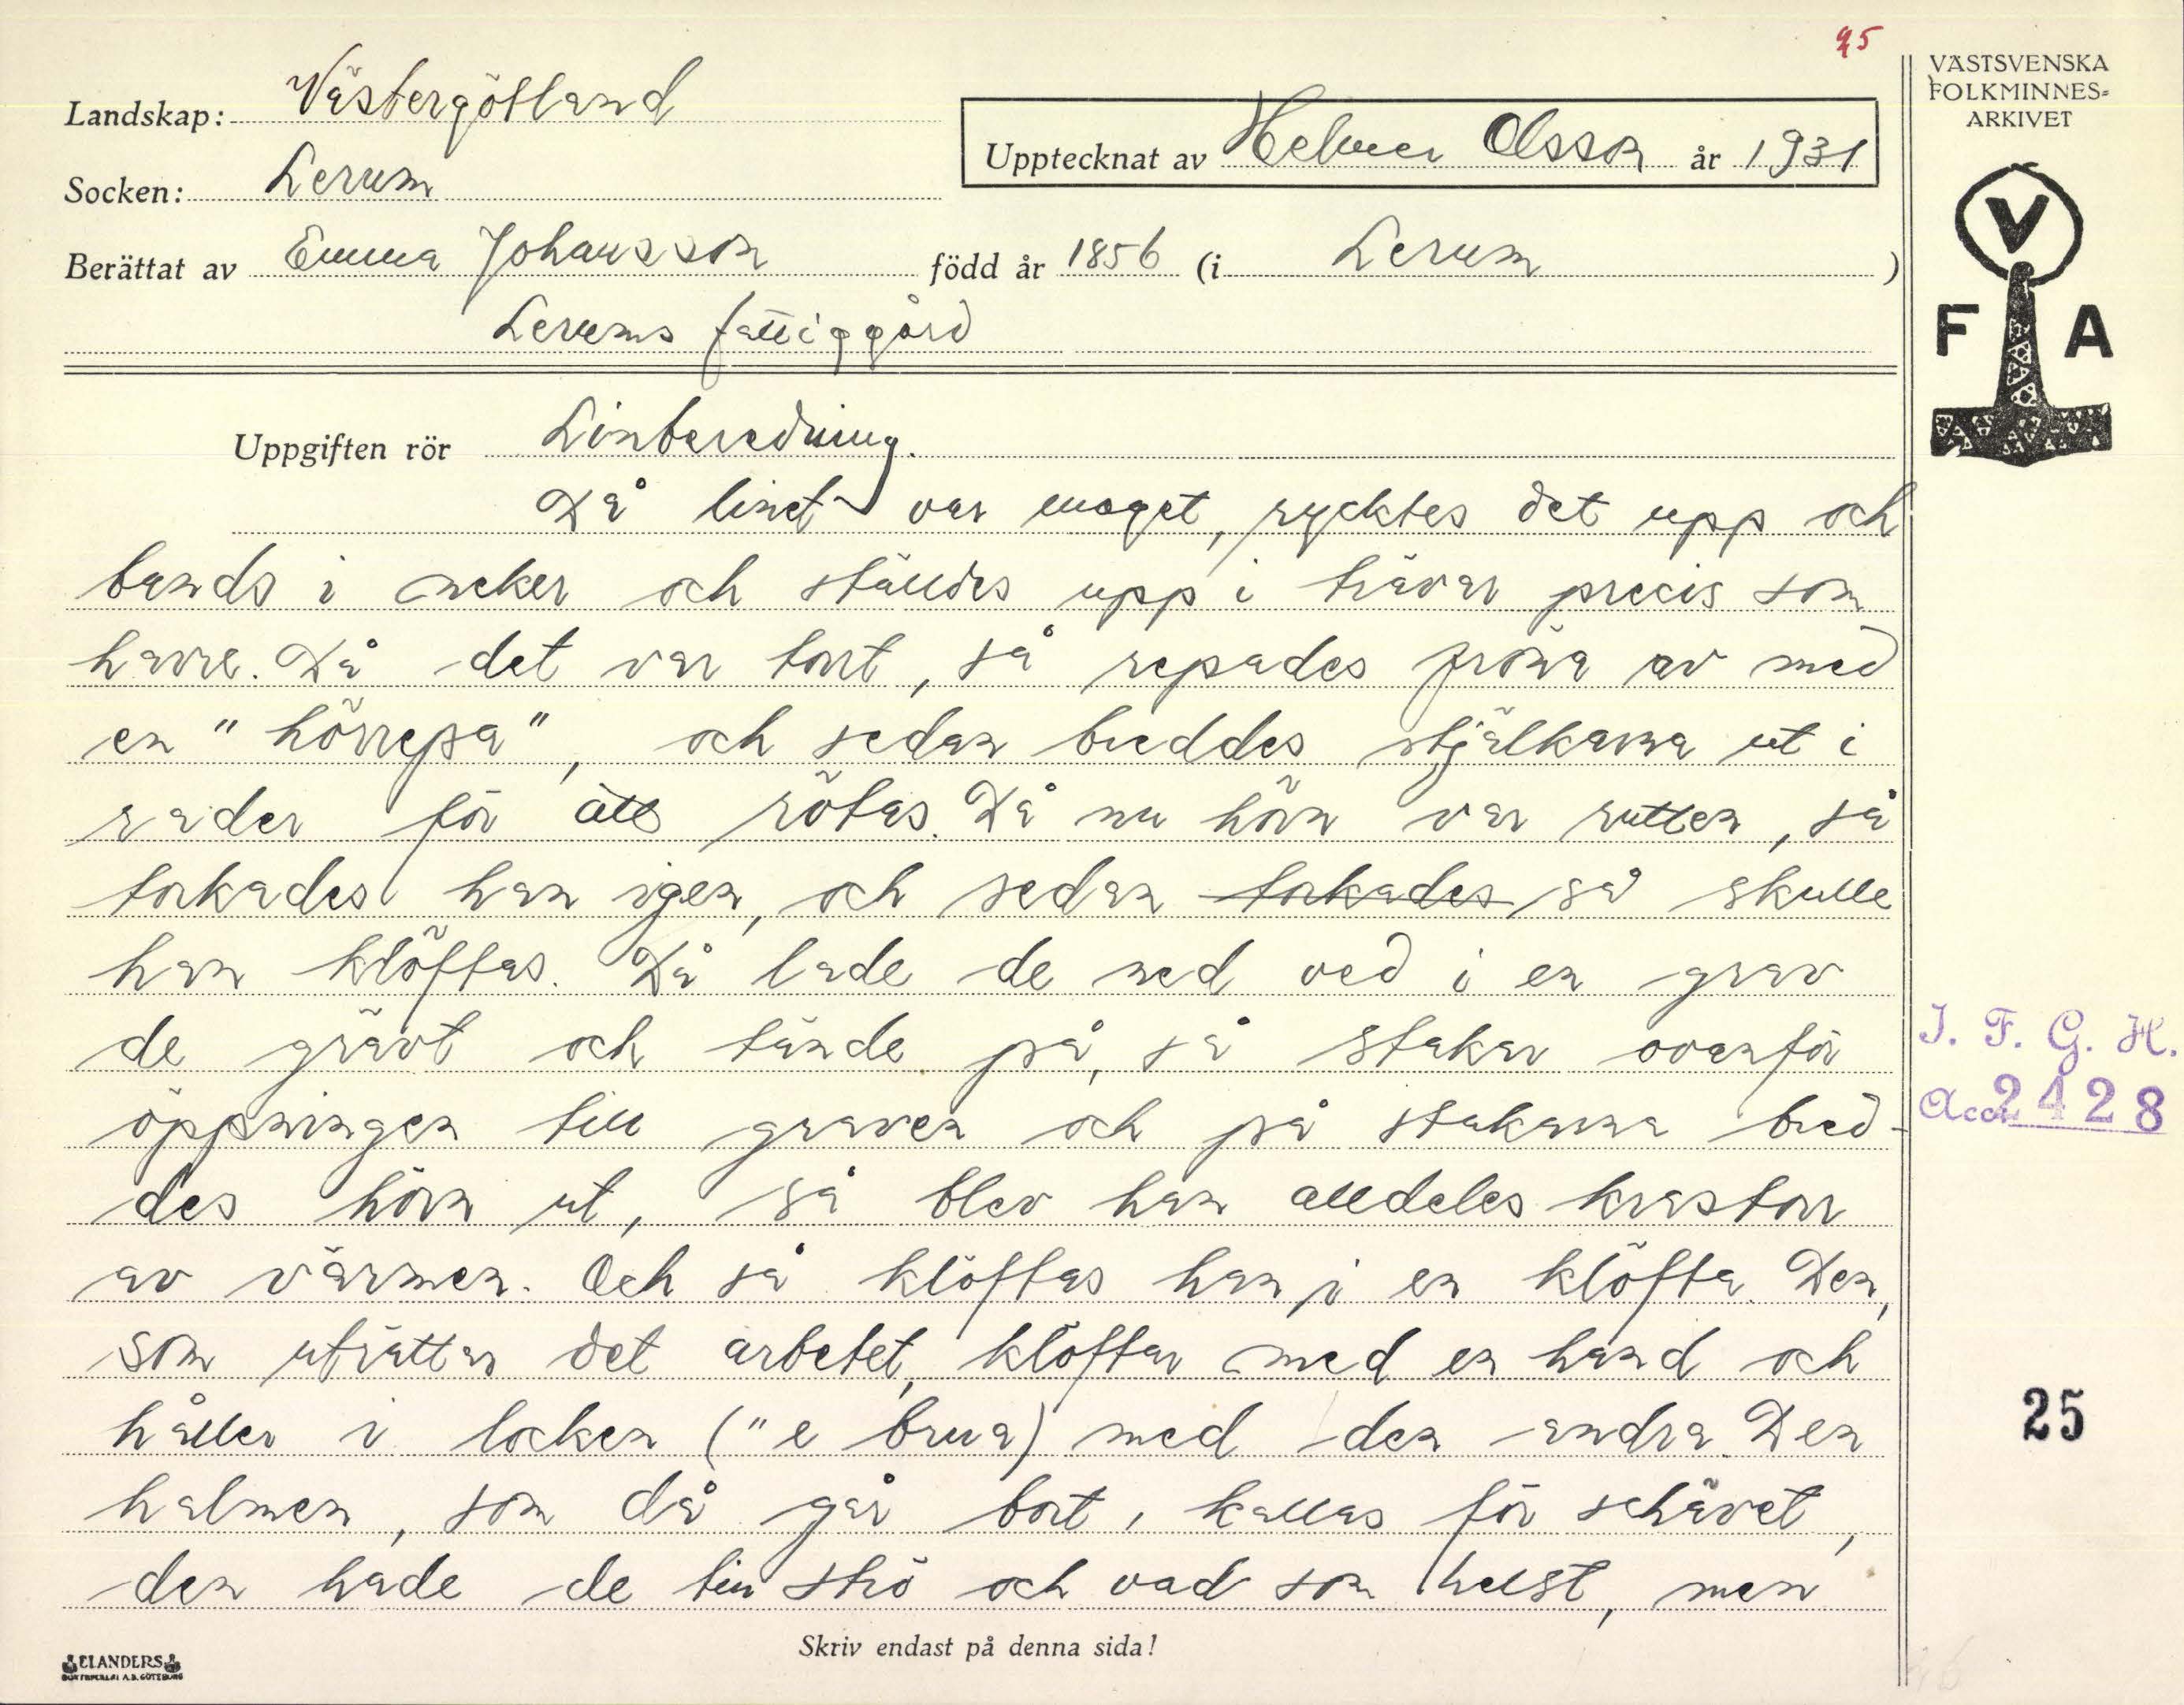 25
VÄSTSVENSKA
FOLKMINNES=
ARKIVET
Landskap: Västergötland
Upptecknat av Helmer Olsson år 1931
Socken: Lerum
Berättat av Emma Johansson född år 1856 (i Lerum)
Lerums fattiggård
V
F A
Uppgiften rör Linberedning.
Då linet var moget, rycktes det upp och
bands i neker och ställdes upp i travar precis som
havre. Då det var tort, så repades fröna av med
en "hörrepa", och sedan breddes stjälkarna ut i
rader för att rötas. Då nu hörn var rutten, så
torkades han igen, och sedan torkades så skulle
han klöftas. Då lade de ned ved i en grav
de grävt och tände på, så stakar ovanför
öppningen till graven och på stakarna bred-
des hörn ut, så blev han alldeles krastorr
av värmen. Och så klöftas han i en klöfta. Den,
som uträttar det arbetet, klöftar med en hand och
håller i locken ("e brua) med den andra. Den
halmen, som då går bort, kallas för schävet,
den hade de till strö och vad som helst, men
J. F. G. H.
Acc. 2428
25
Skriv endast på denna sida!
ELANDERS
BOKTRYCKERI A.B. GÖTEBORG